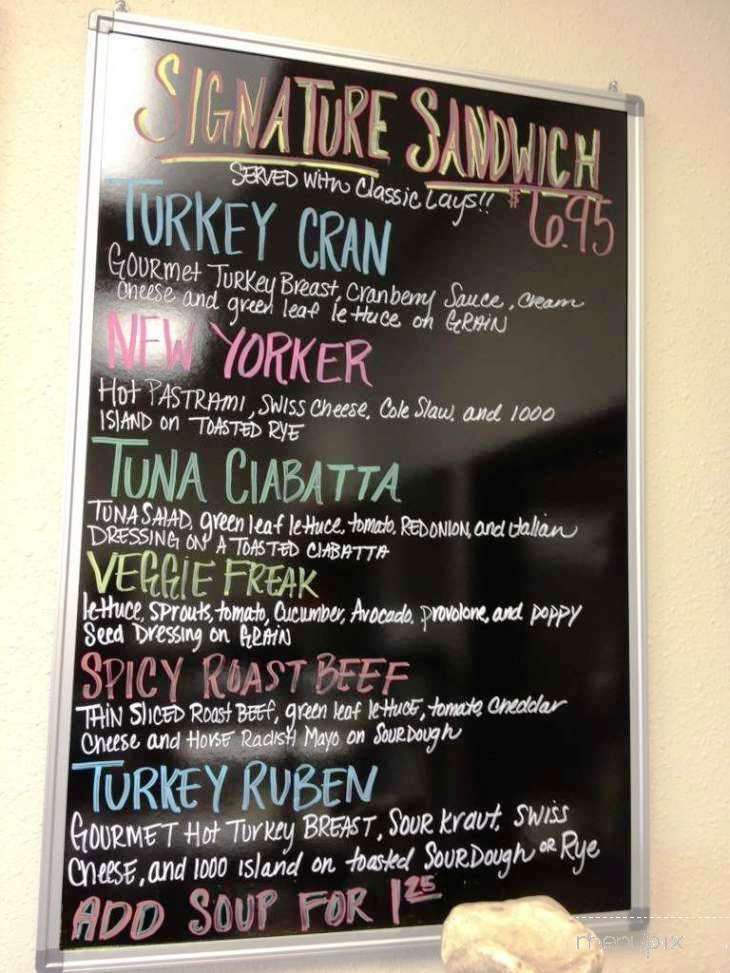 SIGNATURE SANDWICH
SERVED with Classic Lays!! $6.95
TURKEY CRAN
GOURmet TURKey Breast, Cranberry Sauce, Cream
Cheese and green leaf lettuce on GRAIN
NEW YORKER
Hot PASTRAMI, SWISS Cheese, Cole Slaw, and 1000
ISLAND on TOASTED RYE
TUNA CIABATTA
TUNA SALAD, green leaf lettuce, tomato, RED ONION, and italian
DRESSING ON A TOASTED CIABATTA
VEGGIE FREAK
lettuce, sprouts, tomato, Cucumber, Avocado, provolone, and poppy
Seed Dressing on GRAIN
SPICY ROAST BEEF
THIN SLICED Roast BEEF, green leaf lettuce, tomato, Cheddar
Cheese and HORSE Radish Mayo on SOURDough
TURKEY RUBEN
GOURMET Hot Turkey BREAST, SOUR Kraut, SWISS
Cheese, and 1000 ISLAND on toasted SOURDough OR Rye
ADD SOUP FOR 1 25
menupix